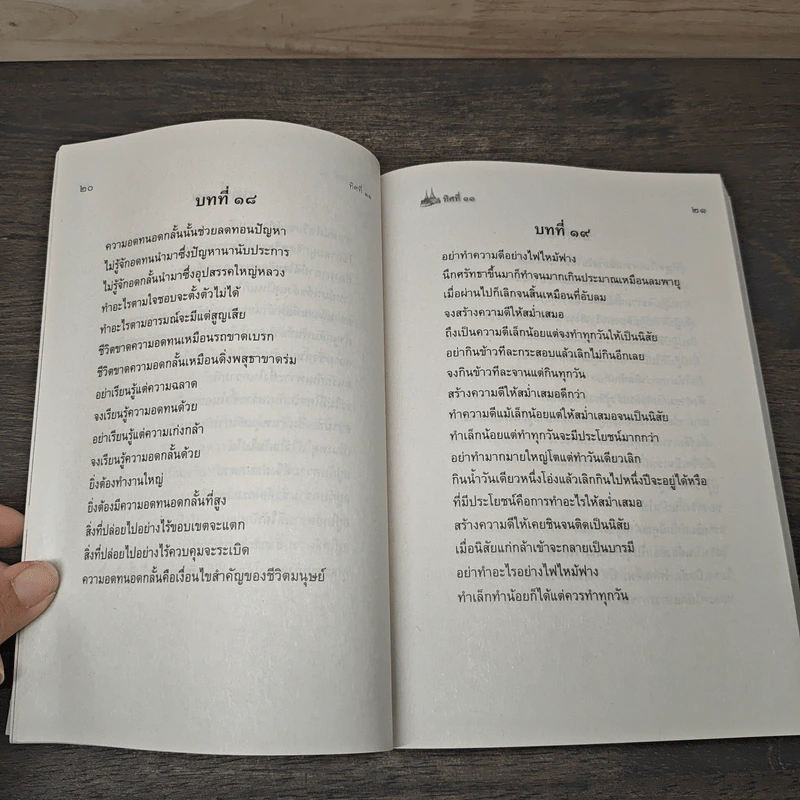 ๒๐
ทิศที่ ๑๑
บทที่ ๑๘
ความอดทนอดกลั้นนั้นช่วยลดทอนปัญหา
ไม่รู้จักอดทนนำมาซึ่งปัญหานานับประการ
ไม่รู้จักอดกลั้นนำมาซึ่งอุปสรรคใหญ่หลวง
ทำอะไรตามใจชอบจะตั้งตัวไม่ได้
ทำอะไรตามอารมณ์จะมีแต่สูญเสีย
ชีวิตขาดความอดทนเหมือนรถขาดเบรก
ชีวิตขาดความอดกลั้นเหมือนดิ่งพสุธาขาดร่ม
อย่าเรียนรู้แต่ความฉลาด
จงเรียนรู้ความอดทนด้วย
อย่าเรียนรู้แต่ความเก่งกล้า
จงเรียนรู้ความอดกลั้นด้วย
ยิ่งต้องทำงานใหญ่
ยิ่งต้องมีความอดทนอดกลั้นที่สูง
สิ่งที่ปล่อยไปอย่างไร้ขอบเขตจะแตก
สิ่งที่ปล่อยไปอย่างไร้ควบคุมจะระเบิด
ความอดทนอดกลั้นคือเงื่อนไขสำคัญของชีวิตมนุษย์
ทิศที่ ๑๑
๒๑
บทที่ ๑๙
อย่าทำความดีอย่างไฟไหม้ฟาง
นึกศรัทธาขึ้นมาก็ทำจนมากเกินประมาณเหมือนลมพายุ
เมื่อผ่านไปก็เลิกจนสิ้นเหมือนที่อับลม
จงสร้างความดีให้สม่ำเสมอ
ถึงเป็นความดีเล็กน้อยแต่จงทำทุกวันให้เป็นนิสัย
อย่ากินข้าวทีละกระสอบแล้วเลิกไม่กินอีกเลย
จงกินข้าวทีละจานแต่กินทุกวัน
สร้างความดีให้สม่ำเสมอดีกว่า
ทำความดีแม้เล็กน้อยแต่ให้สม่ำเสมอจนเป็นนิสัย
ทำเล็กน้อยแต่ทำทุกวันจะมีประโยชน์มากกว่า
อย่าทำมากมายใหญ่โตแต่ทำวันเดียวเลิก
กินน้ำวันเดียวหนึ่งโอ่งแล้วเลิกกินไปหนึ่งปีจะอยู่ได้หรือ
ที่มีประโยชน์คือการทำอะไรให้สม่ำเสมอ
สร้างความดีให้เคยชินจนติดเป็นนิสัย
เมื่อนิสัยแก่กล้าเข้าจะกลายเป็นบารมี
อย่าทำอะไรอย่างไฟไหม้ฟาง
ทำเล็กทำน้อยก็ได้แต่ควรทำทุกวัน